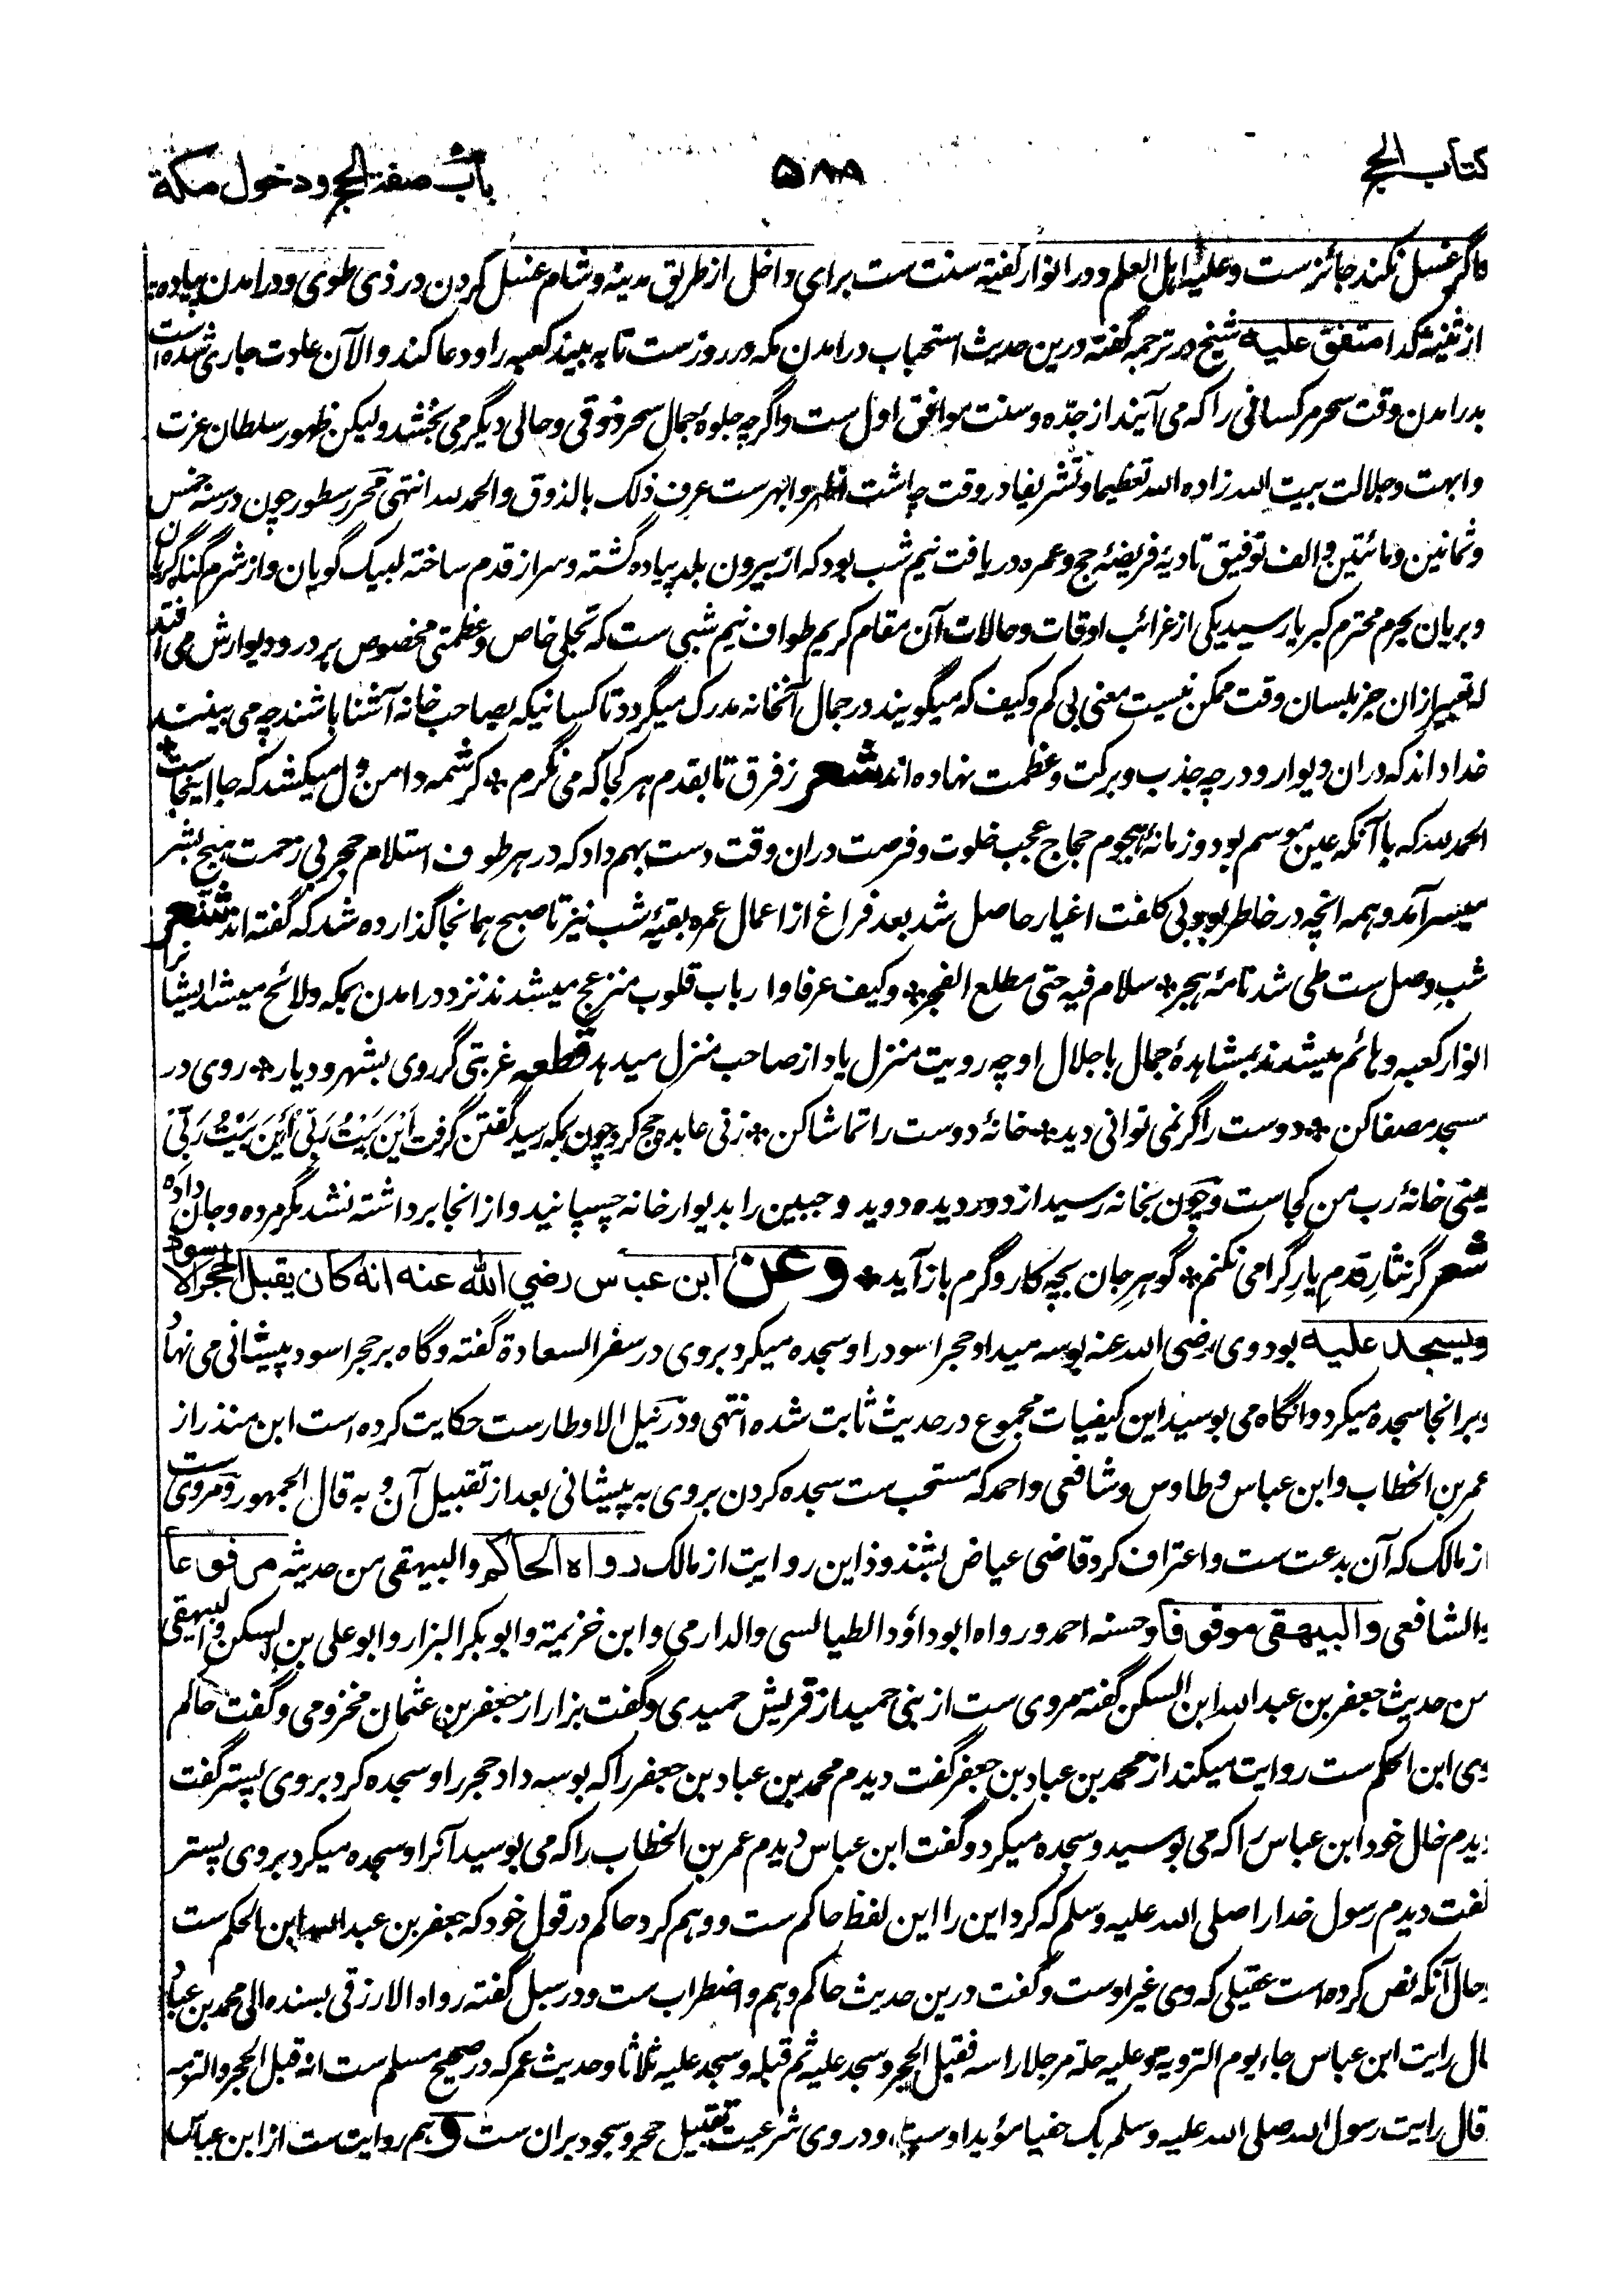 کتاب الحج ۵۸۸ باب صفة الحج ودخول مکة
واگر غسل نکند جائزست وعلیه اهل العلم ودر انوار گفته سنت ست برای داخل از طریق مدینه وشام غسل کردن در ذی طوی ودرامدن پیاده
از ثنیه کدا متفق علیه شیخ در ترجمه گفته درین حدیث استحباب درامدن مکه در روزست تا به بیند کعبه را ودعا کند والآن عادت جاری شده است
بدرامدن وقت سحر مر کسانی را که می آیند از جدّه وسنت موافق اول ست واگرچه جلوهٔ جمال سحر ذوقی وحالی دیگر می بخشد ولیکن ظهور سلطان عزت
وابهت وجلالت بیت الله زاده الله تعظیما وتشریفا در وقت چاشت اظهر وابهرست عرف ذلک بالذوق والحمد لله انتهی محرر سطور چون در سنه خمس
وثمانین ومائتین والف توفیق تادیهٔ فریضهٔ حج وعمره دریافت نیم شب بود که از بیرون بلد پیاده گشته وسر از قدم ساخته لبیک گویان واز شرم گناه گریان
وبریان بحرم محترم کبریا رسید یکی از غرائب اوقات وحالات آن مقام کریم طواف نیم شبی ست که تجلی خاص وعظمتی مخصوص بر در ودیوارش می افتد
که تعبیر ازان جز بلسان وقت ممکن نیست معنی بی کم وکیف که میگویند در جمال آنخانه مدرک میگردد تا کسانیکه بصاحب خانه آشنا باشند چه می بینند
خدا داند که دران دیوار ودر چه جذب وبرکت وعظمت نهاده اند شعر ز فرق تا بقدم هر کجا که می نگرم * کرشمه دامن دل میکشد که جا اینجاست *
الحمد لله که با آنکه عین موسم بود وزمانهٔ هجوم حجاج عجب خلوت وفرصت دران وقت دست بهم داد که در هر طوف استلام حجر بی زحمت هیچ بشر
میسر آمد وهمه انچه در خاطر بود بی کلفت اغیار حاصل شد بعد فراغ از اعمال عمره بقیهٔ شب نیز تا صبح همانجا گذارده شد که گفته اند شعر
شبِ وصل ست طی شد نامهٔ هجر * سلام فیه حتی مطلع الفجر * وکیف عرفا وارباب قلوب منزعج میشدند نزد درامدن بمکه ولائح میشد ایشانرا
انوار کعبه وهائم میشدند بمشاهدهٔ جمال با جلال او چه رویت منزل یاد از صاحب منزل میدهد قطعه غربتی گر روی بشهر ودیار * روی در
مسجد مصفا کن * دوست را گر نمی توانی دید * خانهٔ دوست را تماشا کن * زنی عابده حج کرد چون بمکه رسید گفتن گرفت اَیْنَ بَیْتُ رَبِّی اَیْنَ بَیْتُ رَبِّی
یعنی خانهٔ رب من کجاست وچون بخانه رسید از دور دیده دوید وجبین را بدیوار خانه چسپانید واز انجا برداشته نشد مگر مرده وجان داده
شعر گر نثارِ قدمِ یارِ گرامی نکنم * گوهرِ جان بچه کار دگرم باز آید * وعن ابن عباس رضي الله عنه انه کان یقبل الحجر الاسود
ویسجد علیه بود وی رضی الله عنه بوسه میداد حجر اسود را وسجده میکرد بر وی در سفر السعادة گفته وگاه بر حجر اسود پیشانی می نهاد
وبر انجا سجده میکرد وانگاه می بوسید این کیفیات مجموع در حدیث ثابت شده انتهی ودر نیل الاوطار ست حکایت کرده است ابن منذر از
عمر بن الخطاب وابن عباس وطاوس وشافعی واحمد که مستحب ست سجده کردن بر وی به پیشانی بعد از تقبیل آن وبه قال الجمهور ومروی ست
از مالک که آن بدعت ست واعتراف کرد قاضی عیاض بشذوذ این روایت از مالک رواه الحاکم والبیهقی من حدیثه مرفوعا
والشافعی والبیهقی موقوفا وحسنه احمد ورواه ابو داؤد الطیالسی والدارمی وابن خزیمة وابو بکر البزار وابو علی بن السکن والبیهقی
من حدیث جعفر بن عبد الله ابن السکن گفته مروی ست از بنی حمید از قریش حمیدی وگفت بزار از جعفر بن عثمان مخزومی وگفت حاکم
وی ابن الحکم ست روایت میکند از محمد بن عباد بن جعفر گفت دیدم محمد بن عباد بن جعفر را که بوسه داد حجر را وسجده کرد بر وی پستر گفت
دیدم خال خود ابن عباس را که می بوسید وسجده میکرد وگفت ابن عباس دیدم عمر بن الخطاب را که می بوسید آنرا وسجده میکرد بر وی پستر
گفت دیدم رسول خدا را صلی الله علیه وسلم که کرد این را این لفظ حاکم ست ووهم کرد حاکم در قول خود که جعفر بن عبد الله ابن الحکم ست
وحال آنکه نص کرده است عقیلی که وی غیر اوست وگفت درین حدیث حاکم وهم واضطراب ست ودر سبل گفته رواه الارزقی بسنده الی محمد بن عباد
قال رایت ابن عباس جاء یوم الترویة وعلیه حلة مرجلا راسه فقبل الحجر وسجد علیه ثم قبله وسجد علیه ثلاثا وحدیث عمر که در صحیح مسلم ست انه قبل الحجر والتزمه
وقال رایت رسول الله صلی الله علیه وسلم بک حفیا مؤید اوست ودر وی شرعیت تقبیل حجر وسجود بران ست وهم روایت ست از ابن عباس